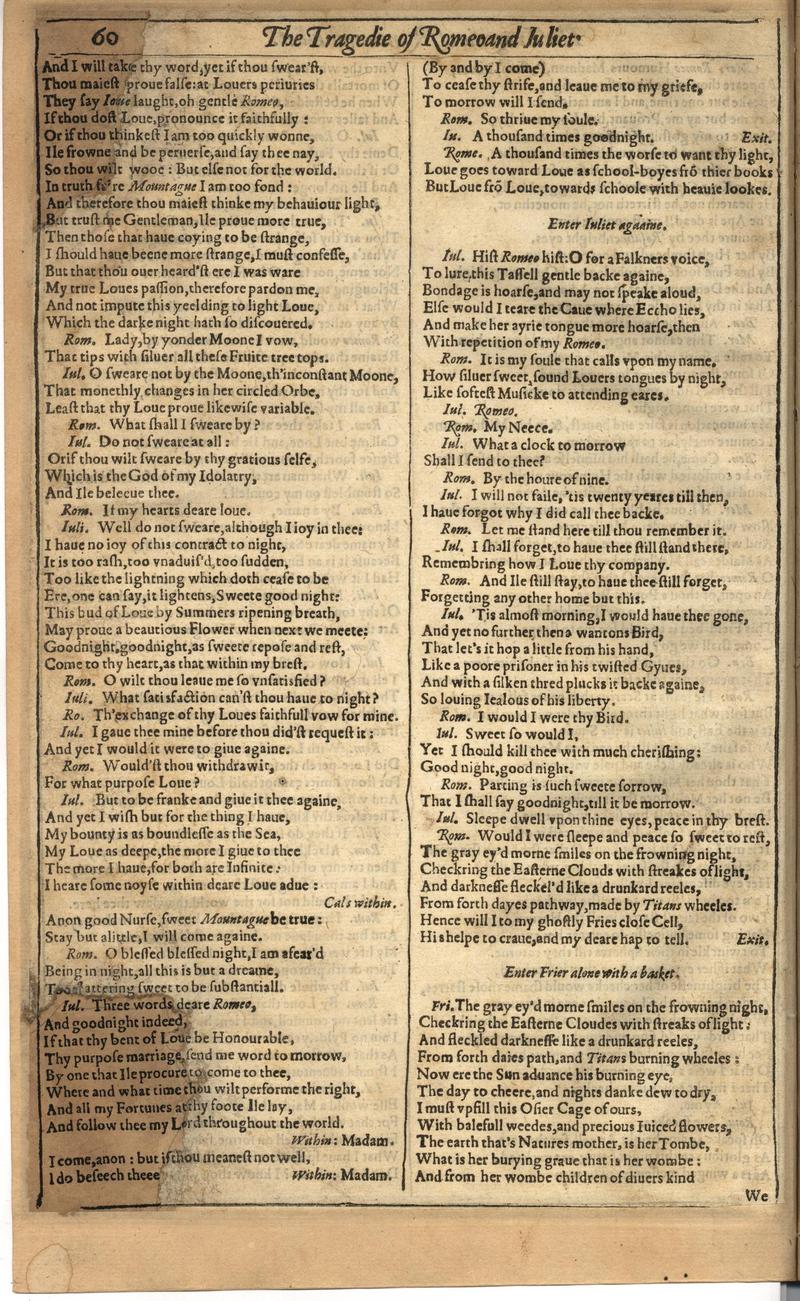 60
The Tragedie of Romeo and Iuliet.
And I will take thy word, yet if thou swear'st,
Thou maiest proue false: at Louers periuries
They say Ioue laught, oh gentle Romeo,
If thou dost Loue, pronounce it faithfully :
Or if thou thinkest I am too quickly wonne,
Ile frowne and be peruerse, and say thee nay,
So thou wilt wooe : But else not for the world.
In truth faire Mountague I am too fond :
And therefore thou maiest thinke my behauiour light,
But trust me Gentleman, Ile proue more true,
Then those that haue coying to be strange,
I should haue beene more strange, I must confesse,
But that thou ouer heard'st ere I was ware
My true Loues passion, therefore pardon me,
And not impute this yeelding to light Loue,
Which the darke night hath so discouered.
Rom. Lady, by yonder Moone I vow,
That tips with siluer all these Fruite tree tops.
Iul. O sweare not by the Moone, th'inconstant Moone,
That monethly changes in her circled Orbe,
Least that thy Loue proue likewise variable.
Rom. What shall I sweare by ?
Iul. Do not sweare at all :
Or if thou wilt sweare by thy gratious selfe,
Which is the God of my Idolatry,
And Ile beleeue thee.
Rom. If my hearts deare loue.
Iuli. Well do not sweare, although I ioy in thee:
I haue no ioy of this contract to night,
It is too rash, too vnaduis'd, too sudden,
Too like the lightning which doth cease to be
Ere, one can say, it lightens, Sweete good night:
This bud of Loue by Summers ripening breath,
May proue a beautious Flower when next we meete:
Goodnight, goodnight, as sweete repose and rest,
Come to thy heart, as that within my brest.
Rom. O wilt thou leaue me so vnsatisfied ?
Iuli. What satisfaction can'st thou haue to night ?
Ro. Th'exchange of thy Loues faithfull vow for mine.
Iul. I gaue thee mine before thou did'st request it :
And yet I would it were to giue againe.
Rom. Would'st thou withdraw it,
For what purpose Loue ?
Iul. But to be franke and giue it thee againe,
And yet I wish but for the thing I haue,
My bounty is as boundlesse as the Sea,
My Loue as deepe, the more I giue to thee
The more I haue, for both are Infinite :
I heare some noyse within deare Loue adue :
Cals within.
Anon good Nurse, sweet Mountague be true :
Stay but a little, I will come againe.
Rom. O blessed blessed night, I am afear'd
Being in night, all this is but a dreame,
Too flattering sweet to be substantiall.
Iul. Three words deare Romeo,
And goodnight indeed,
If that thy bent of Loue be Honourable,
Thy purpose marriage, send me word to morrow,
By one that Ile procure to come to thee,
Where and what time thou wilt performe the right,
And all my Fortunes at thy foote Ile lay,
And follow thee my Lord throughout the world.
Within: Madam.
I come, anon : but if thou meanest not well,
I do beseech theee Within: Madam.
(By and by I come)
To cease thy strife, and leaue me to my griefe,
To morrow will I send.
Rom. So thriue my soule.
Iu. A thousand times goodnight. Exit.
Rome. A thousand times the worse to want thy light,
Loue goes toward Loue as school-boyes frō thier books
But Loue frō Loue, towards schoole with heauie lookes.
Enter Iuliet agaaine.
Iul. Hist Romeo hist: O for a Falkners voice,
To lure, this Tassell gentle backe againe,
Bondage is hoarse, and may not speake aloud,
Else would I teare the Caue where Eccho lies,
And make her ayrie tongue more hoarse, then
With repetition of my Romeo.
Rom. It is my soule that calls vpon my name.
How siluer sweet, sound Louers tongues by night,
Like softest Musicke to attending eares.
Iul. Romeo.
Rom. My Neece.
Iul. What a clock to morrow
Shall I send to thee?
Rom. By the houre of nine.
Iul. I will not faile, 'tis twenty yeares till then,
I haue forgot why I did call thee backe.
Rom. Let me stand here till thou remember it.
Iul. I shall forget, to haue thee still stand there,
Remembring how I Loue thy company.
Rom. And Ile still stay, to haue thee still forget,
Forgetting any other home but this.
Iul. 'Tis almost morning, I would haue thee gone,
And yet no further, then a wantons Bird,
That let's it hop a little from his hand,
Like a poore prisoner in his twisted Gyues,
And with a silken thred plucks it backe againe,
So louing Iealous of his liberty.
Rom. I would I were thy Bird.
Iul. Sweet so would I,
Yet I should kill thee with much cherishing:
Good night, good night.
Rom. Parting is such sweete sorrow,
That I shall say goodnight, till it be morrow.
Iul. Sleepe dwell vpon thine eyes, peace in thy brest.
Rom. Would I were sleepe and peace so sweet to rest,
The gray ey'd morne smiles on the frowning night,
Checkring the Easterne Clouds with streakes of light,
And darknesse fleckel'd like a drunkard reeles,
From forth dayes pathway, made by Titans wheeles.
Hence will I to my ghostly Fries close Cell,
His helpe to craue, and my deare hap to tell. Exit.
Enter Frier alone with a basket.
Fri. The gray ey'd morne smiles on the frowning night,
Checkring the Easterne Cloudes with streaks of light :
And fleckled darknesse like a drunkard reeles,
From forth daies path, and Titans burning wheeles :
Now ere the Sun aduance his burning eye,
The day to cheere, and nights danke dew to dry,
I must vpfill this Osier Cage of ours,
With balefull weedes, and precious Iuiced flowers,
The earth that's Natures mother, is her Tombe,
What is her burying graue that is her wombe :
And from her wombe children of diuers kind
We